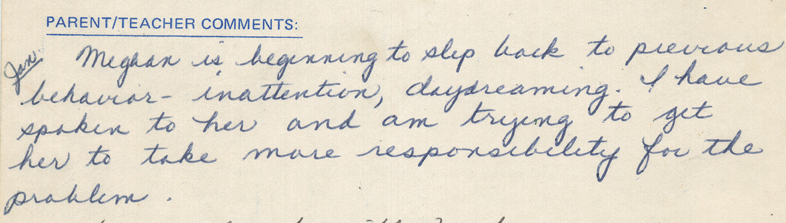 PARENT/TEACHER COMMENTS:
Jan. Meghan is beginning to slip back to previous
behavior - inattention, daydreaming. I have
spoken to her and am trying to get
her to take more responsibility for the
problem.